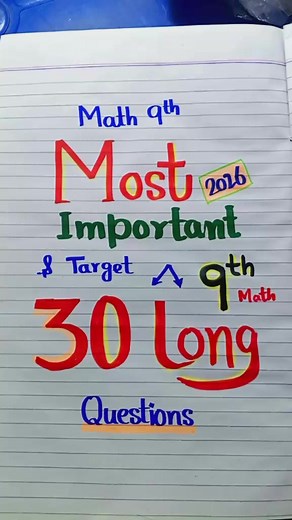 Math 9th
Most 2026
Important
& Target 9th
Math
30 Long
Questions